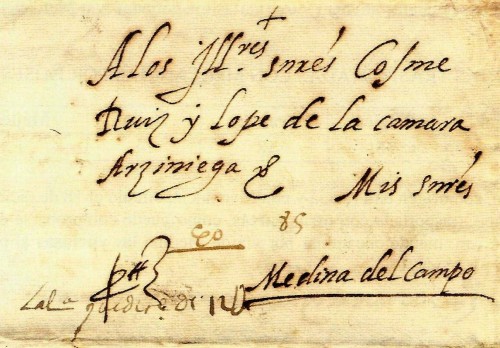 A los Jll.res snrẽs Cosme
Ruiz y lope de la camara
Arziniega &
Mis snrẽs
85
Medina del campo